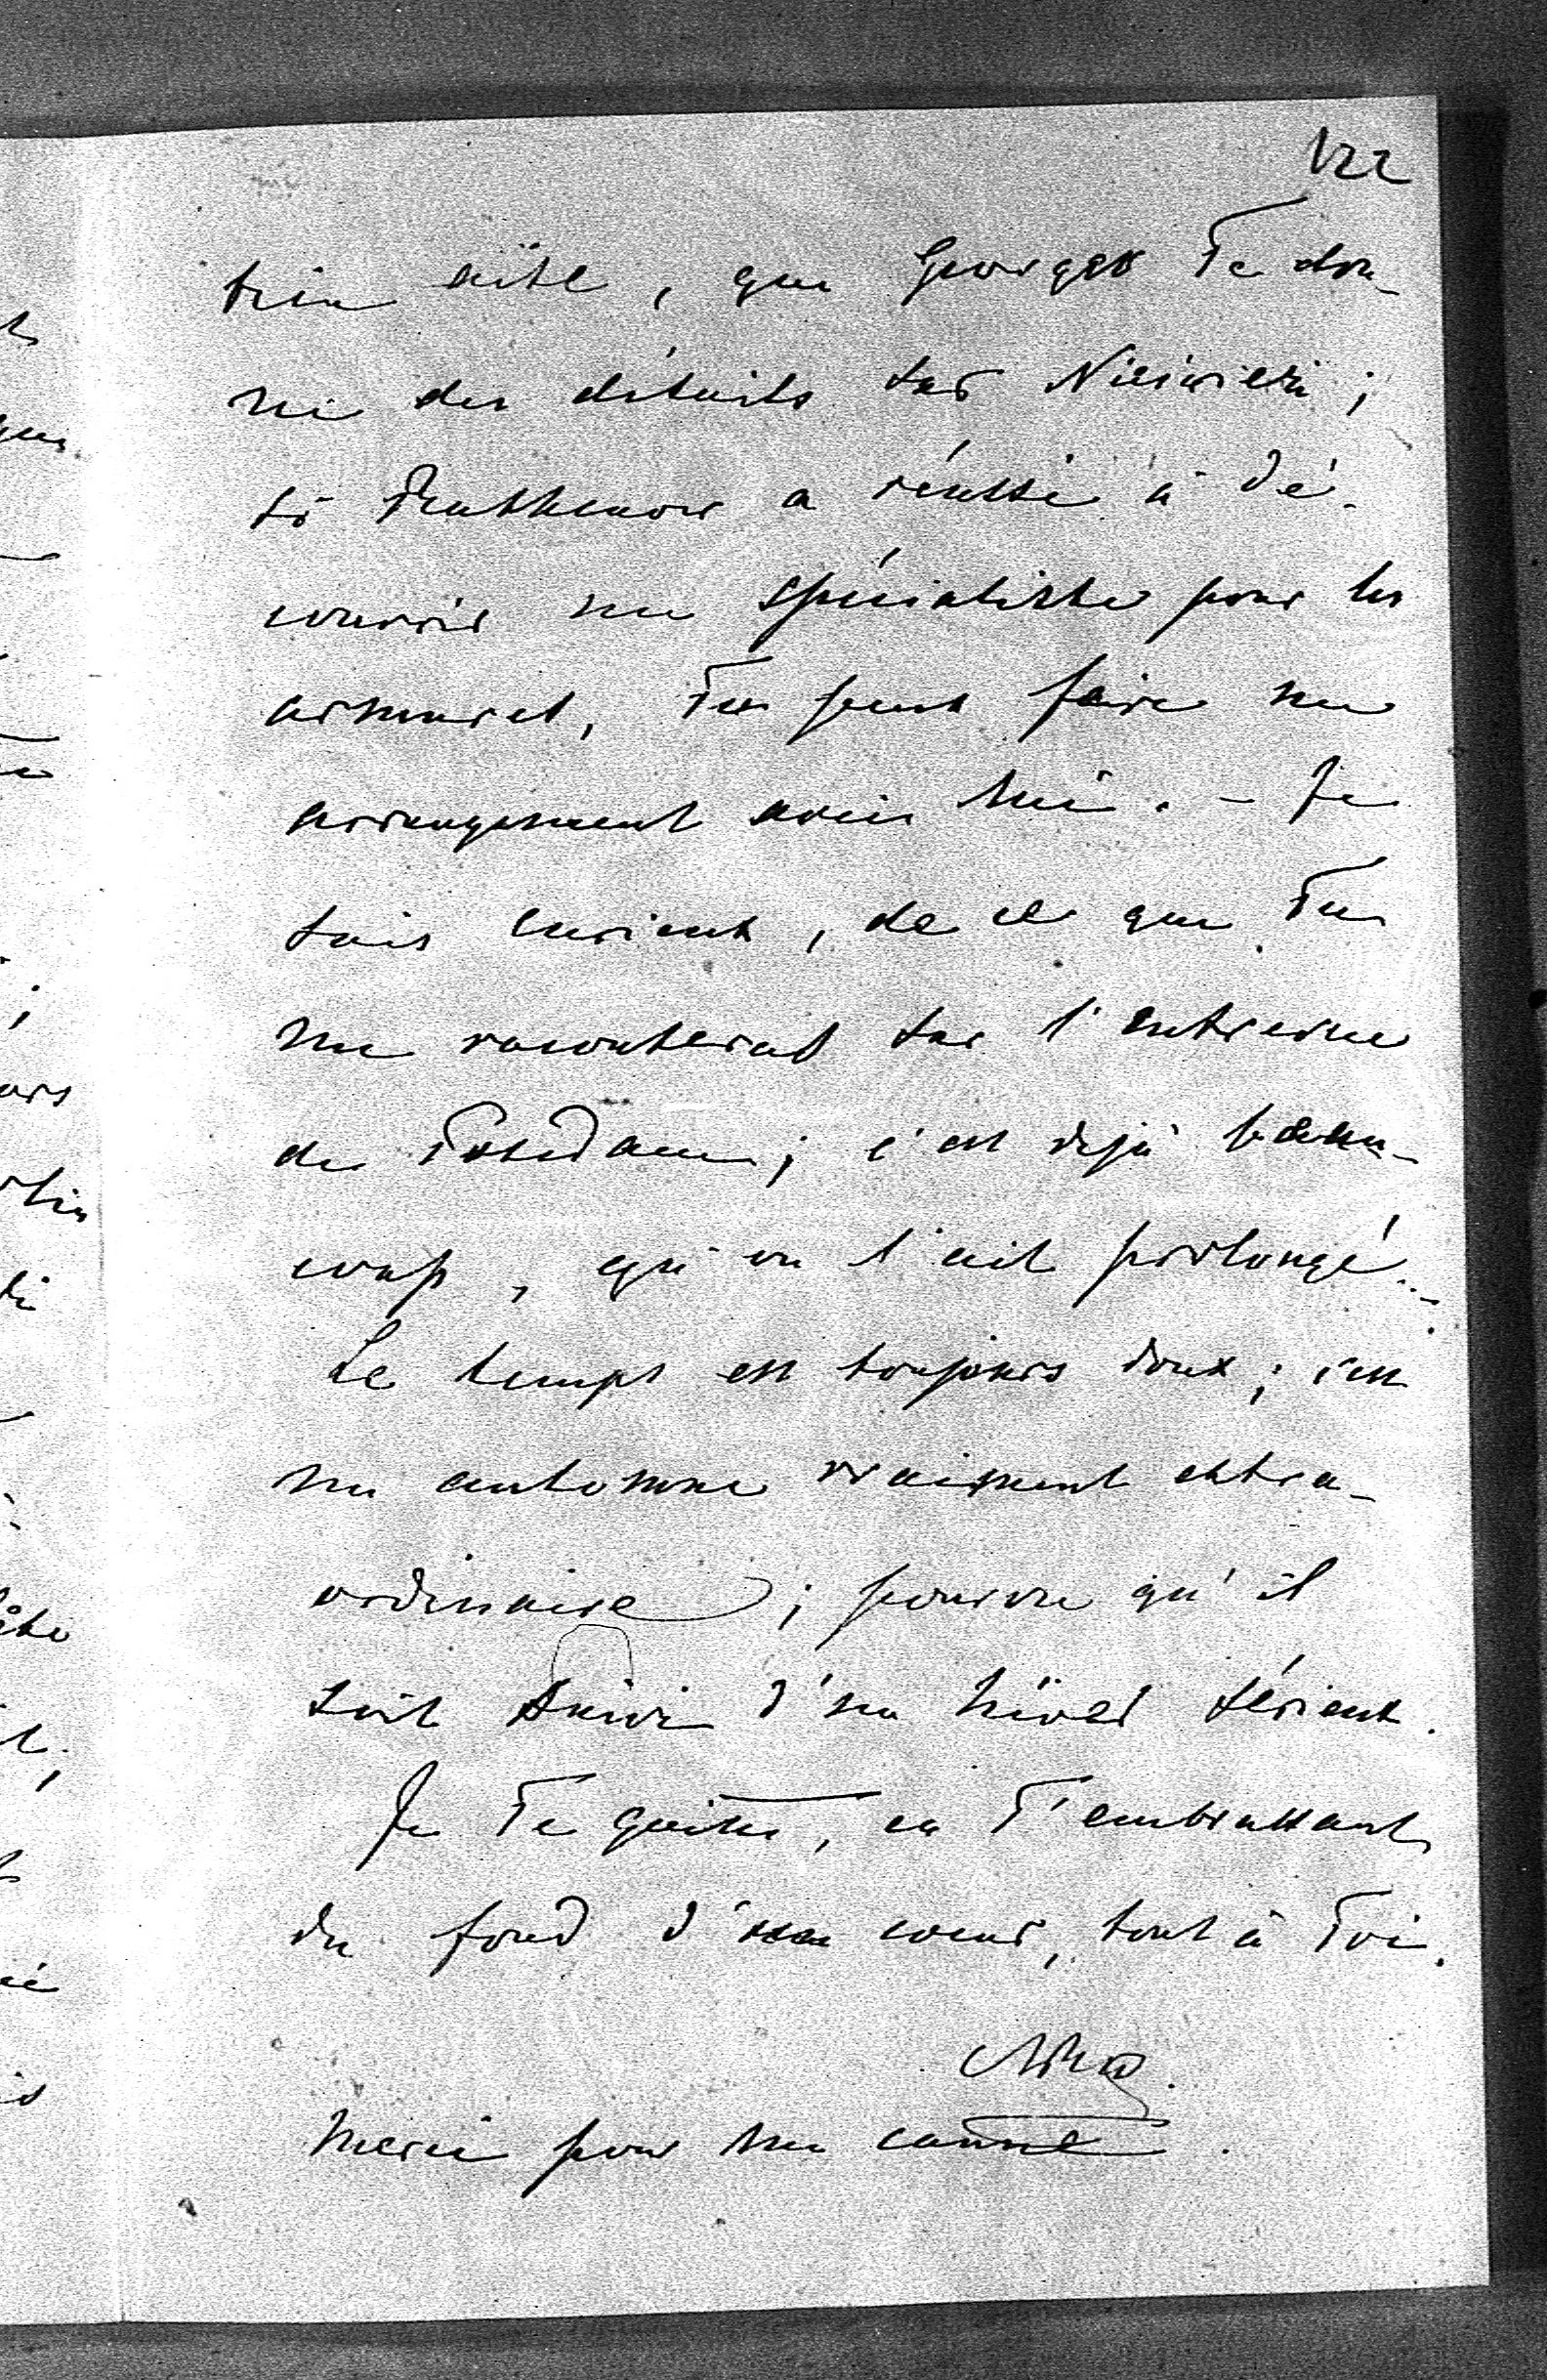 122
bien aise, que Georges Te don-
ne des détails sur Nieśwież ;
si a réussi à dé-
couvrir un spécialiste pour les
armures, Tu peux faire un
arrangement avec lui. – Je
suis curieux, de ce que Tu
me raconteras sur l'entrevue
de Potsdam ; c'est déjà beau-
coup, qu'on l'ait prolongé. –
Le temps est toujours doux ; c'est
un automne vraiment extra-
ordinaire ; pourvu qu'il
soit suivi d'un hiver sérieux.
Je Te quitte, en T'embrassant
du fond d'un coeur, tout à Toi.
Merci pour ma canne.